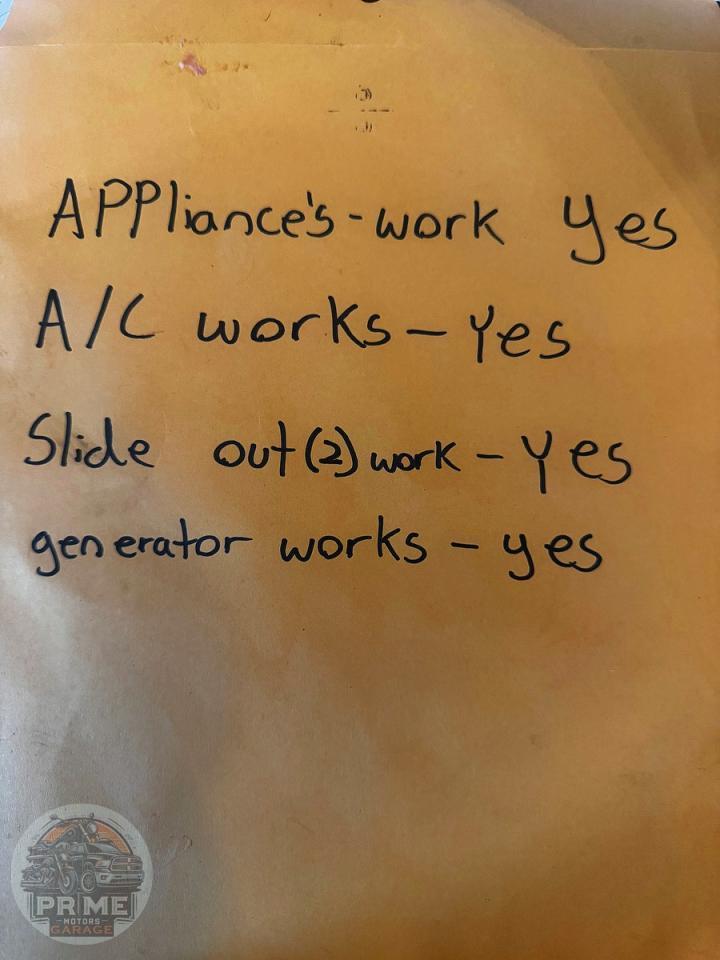 APPliance's - work Yes
A/C works - Yes
Slide out (2) work - Yes
generator works - yes
PRIME
MOTORS
GARAGE